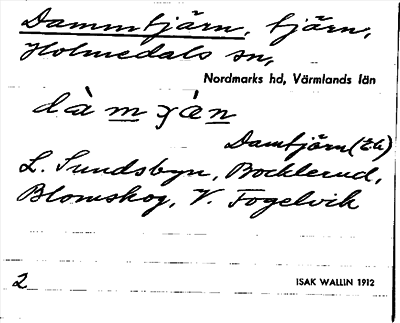 Dammtjärn, tjärn,
Holmedals sn,
Nordmarks hd, Värmlands län
dàmɣá̀n
Damtjärn (Ek)
L. Sundsbyn, Bocklerud,
Blomskog, V. Fogelvik
2 ISAK WALLIN 1912